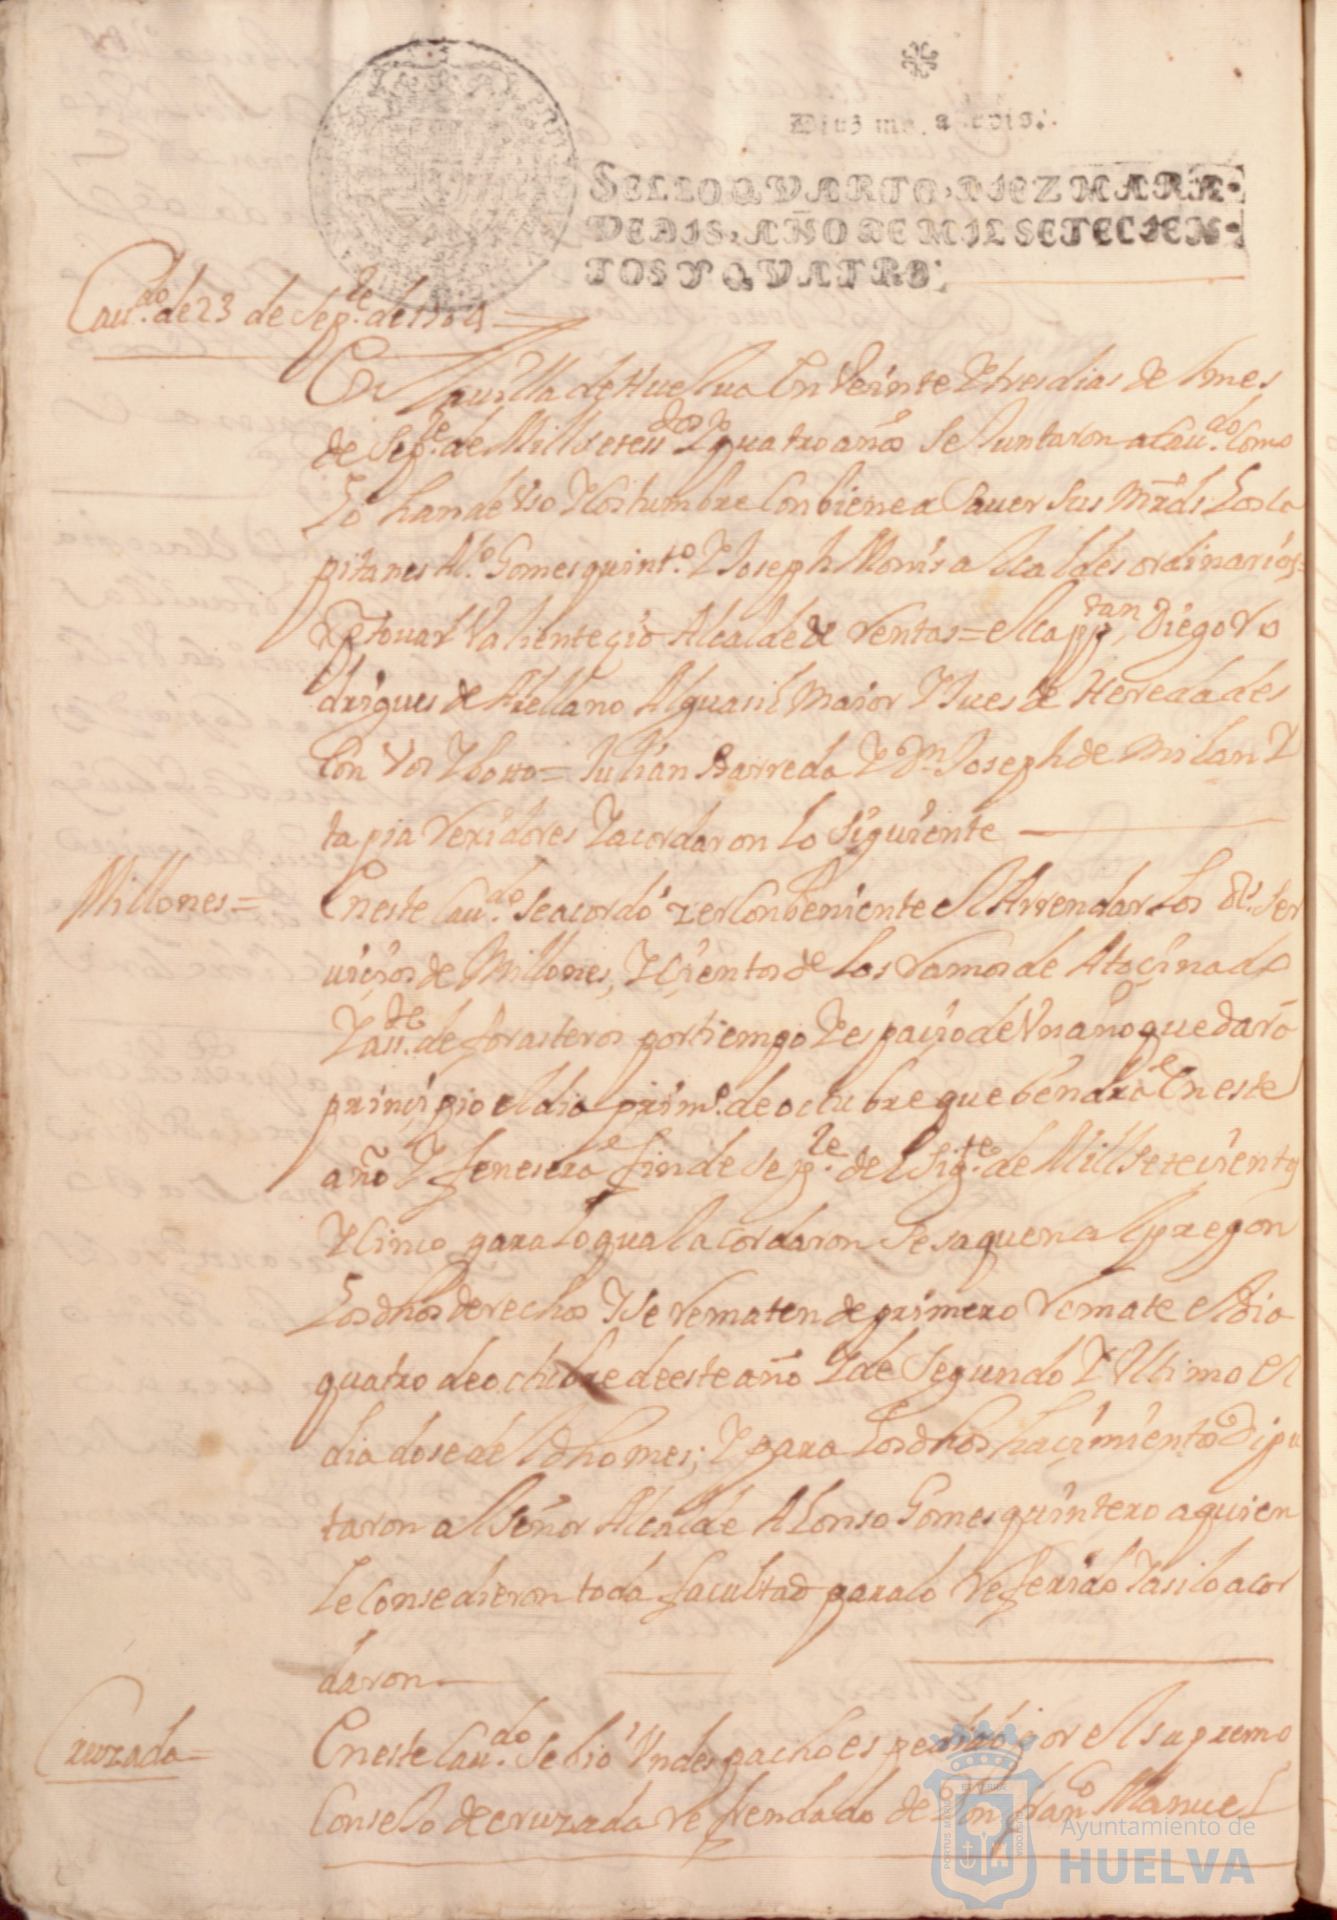 Diez maravedis.
SELLO QVARTO, DIEZ MARA-
VEDIS, AÑO DE MIL SETECIEN-
TOS Y QVATRO.
Cau.do de 23 de Sep.re de 1704 =
En la uilla de Huelua En Veinte Y tres dias de l mes
de Sep.re de Mill seteu.dos Y quatro años Se Juntaron a Cau.do Como
Lo han de Vso Y Costumbre Conbiene a Sauer Sus Mrds. Los Ca
pitanes Al.o Gomes quint.o Y Joseph Moniz alcaldes ordinarios =
Xptoual Valiente gio Alcalde de Ventas = el capp.tan Diego Ro
drigues de Arellano Alguasil Maior Y Jues de Heredades
Con Vos Y botto = Julian Barreda Y Dn Joseph de Milan Y
tapia Rexidores Y acordaron lo Siguiente
Millones =
En este Cau.do se acordó zer Conbeniente el Arrendar Los Rs. Ser
uiçios de Millones, Y Çientos de los Ramos de Atoçinado
Y de forasteros por tiempo Y espaçio de Vn año que dará
prinçipio el dia prim.o de octubre que bendrá En este
año Y feneserá fin de Sep.re del Sig.te de Mill Seteçientos
Y Cinco para lo qual acordaron Se saquen al pregon
Los dhos derechos Y Se rematen de primero Remate el dia
quatro de octubre de este año Y de Segundo Y Vltimo el
dia dose del dho mes; Y para Los dhos haçimientos Dipu
taron al Señor Alcalde Alonso Gomes quintero a quien
Le Consedieron toda facultad para lo Referido Y asi lo acor
daron
Cruzada =
En este Cau.do Se bió Vn despacho espedido por el Supremo
Conselo de cruzada refrendado de Don Fran.co Manuel
Ayuntamiento de
HUELVA